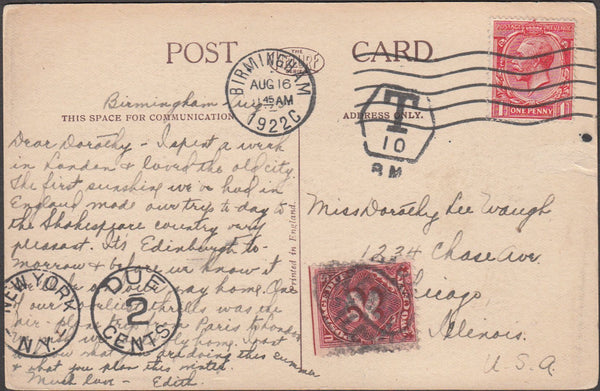 POST CARD
THE
BIRMINGHAM
AUG 16
11 45 AM
1922 C
T
10
BM
POSTAGE REVENUE
ONE PENNY
Birmingham
THIS SPACE FOR COMMUNICATION
ADDRESS ONLY.
Printed in England.
Dear Dorothy - I spent a week
in London & loved the old city.
The first sunshine we've had in
England made our trip to-day to
the Shakespeare country very
pleasant. It's Edinburgh to-
morrow & before we know it
way home. One
of our thrills was the
air-plane trip Paris to London
home.
what are doing this summer
& what you plan this winter.
Much love - Edith.
Miss Dorothy Lee Waugh
1234 Chase Ave.
Chicago,
Illinois.
U.S.A.
NEW YORK
N.Y.
DUE
2
CENTS
POSTAGE DUE